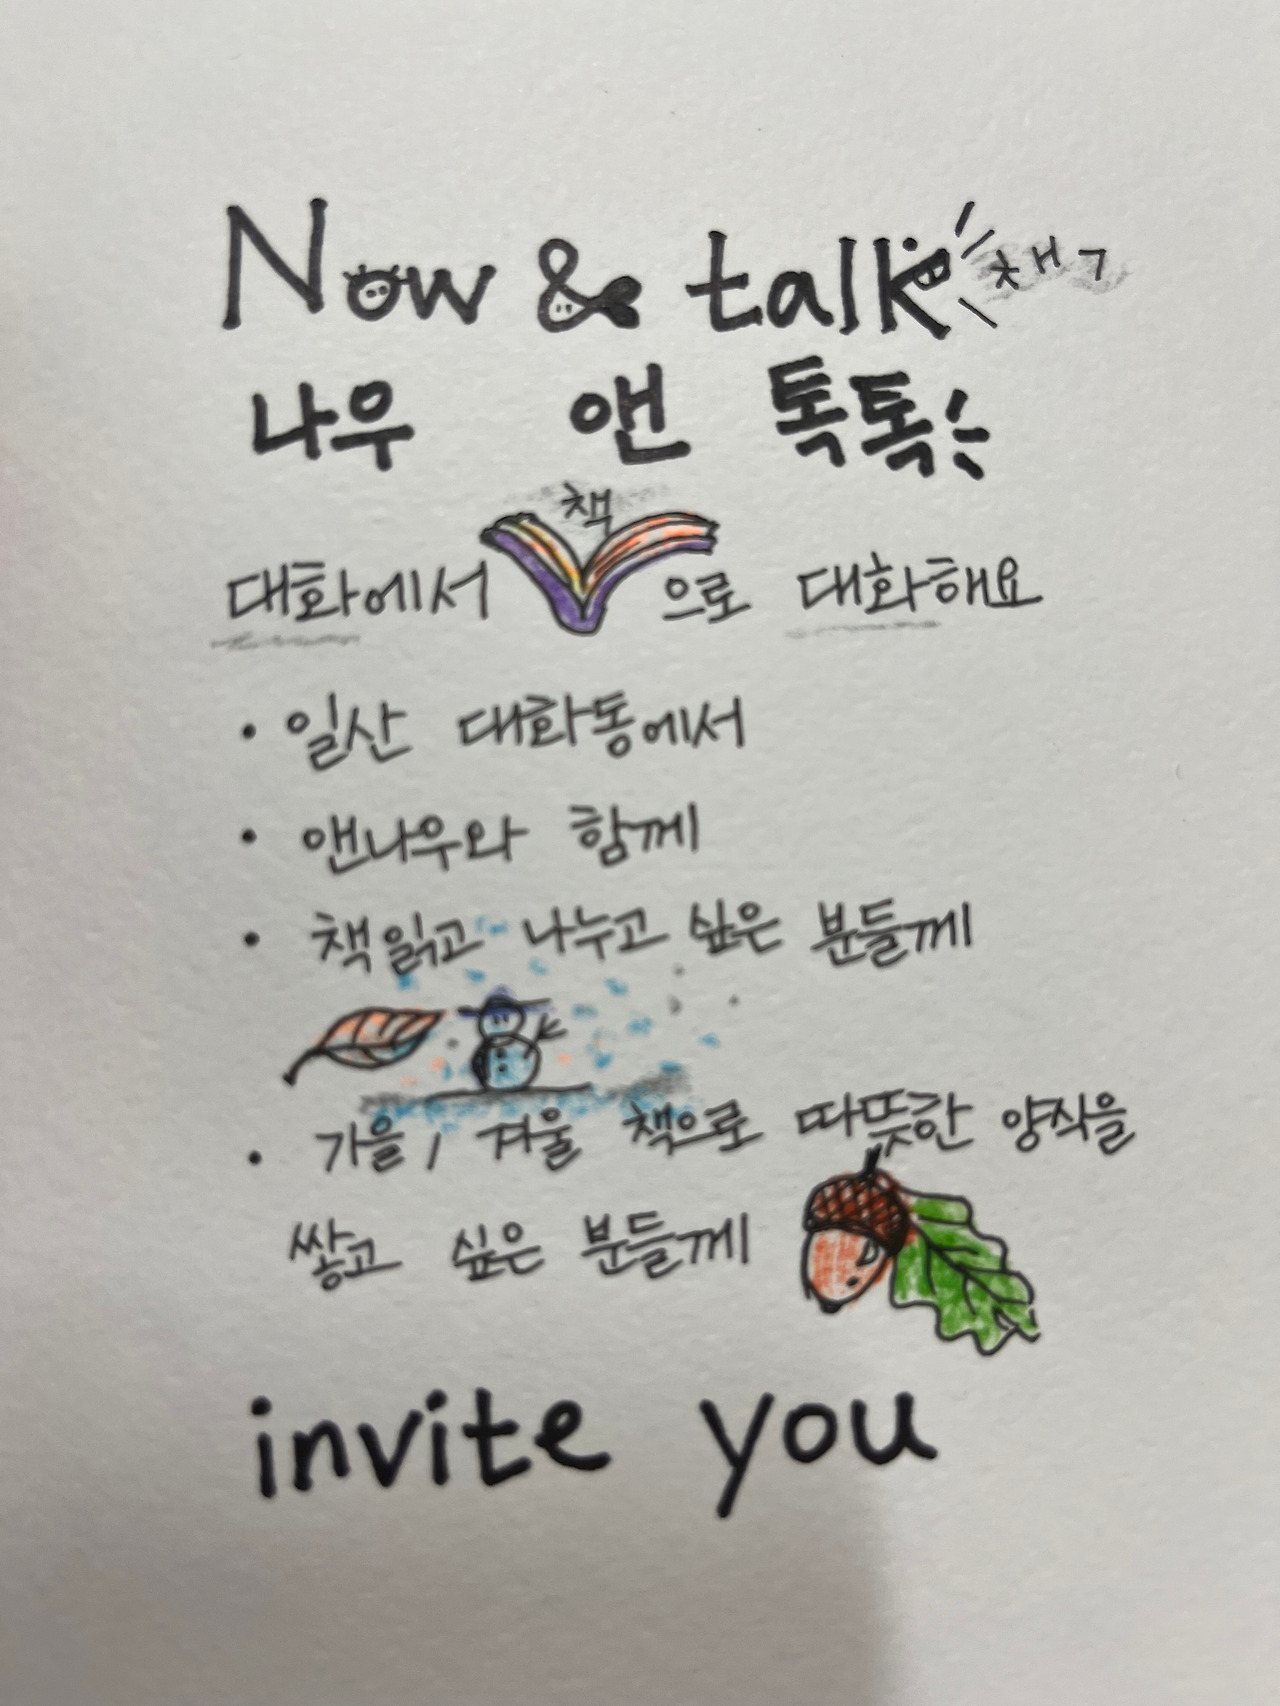 Now & talk 책
나우 앤 톡톡
책
대화에서 으로 대화해요
• 일산 대화동에서
• 앤나우와 함께
• 책읽고 나누고 싶은 분들께
• 가을, 겨울 책으로 따뜻한 양식을
쌓고 싶은 분들께
invite you